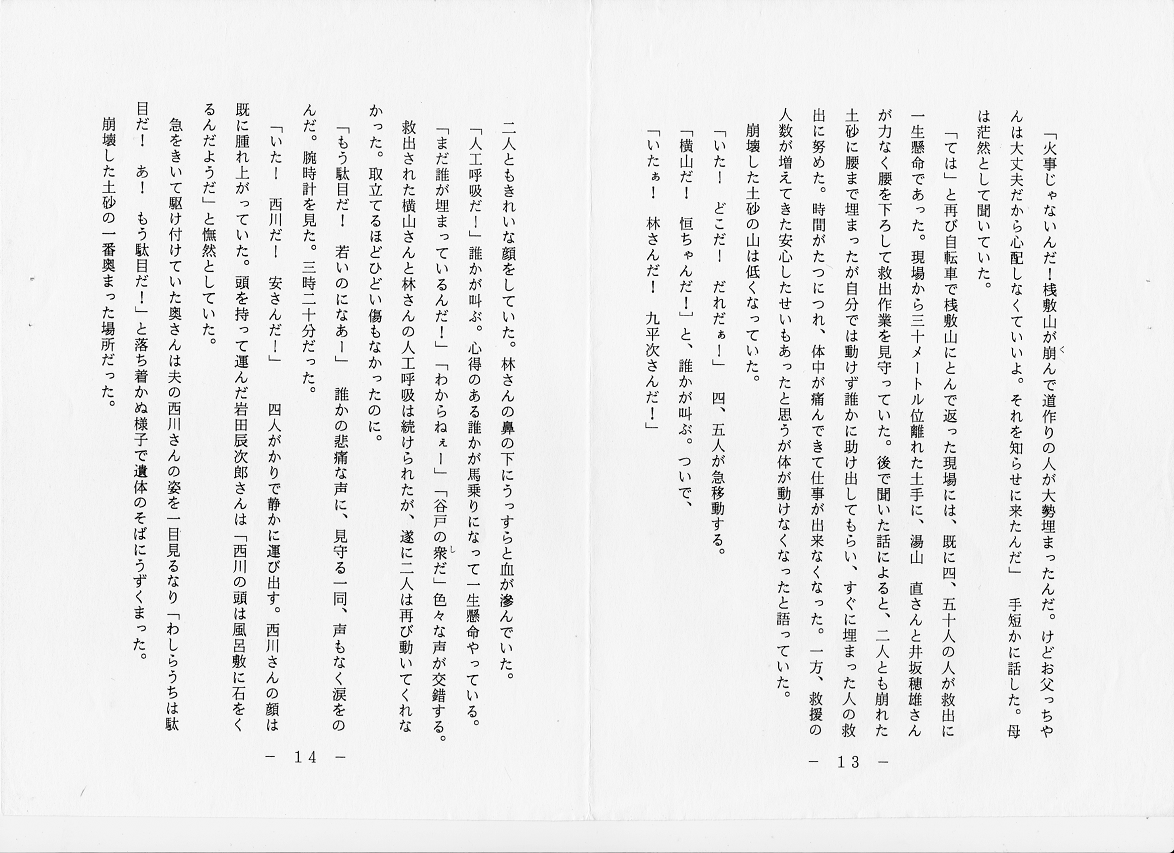 「火事じゃないんだ！桟敷山が崩んで道作りの人が大勢埋まったんだ。けどお父っちゃ
く
んは大丈夫だから心配しなくていいよ。それを知らせに来たんだ」　手短かに話した。母
は茫然として聞いていた。
「では」と再び自転車で桟敷山にとんで返った現場には、既に四、五十人の人が救出に
一生懸命であった。現場から三十メートル位離れた土手に、湯山　直さんと井坂穂雄さん
が力なく腰を下ろして救出作業を見守っていた。後で聞いた話によると、二人とも崩れた
土砂に腰まで埋まったが自分では動けず誰かに助け出してもらい、すぐに埋まった人の救
出に努めた。時間がたつにつれ、体中が痛んできて仕事が出来なくなった。一方、救援の
人数が増えてきた安心したせいもあったと思うが体が動けなくなったと語っていた。
崩壊した土砂の山は低くなっていた。
「いた！　どこだ！　だれだぁ！」　四、五人が急移動する。
「横山だ！　恒ちゃんだ！］と、誰かが叫ぶ。ついで、
「いたぁ！　林さんだ！　九平次さんだ！」
－　13　－
二人ともきれいな顔をしていた。林さんの鼻の下にうっすらと血が滲んでいた。
「人工呼吸だ！」誰かが叫ぶ。心得のある誰かが馬乗りになって一生懸命やっている。
「まだ誰が埋まっているんだ！」「わからねぇー」「谷戸の衆だ」色々な声が交錯する。
し
救出された横山さんと林さんの人工呼吸は続けられたが、遂に二人は再び動いてくれな
かった。取立てるほどひどい傷もなかったのに。
「もう駄目だ！　若いのになあー」　誰かの悲痛な声に、見守る一同、声もなく涙をの
んだ。腕時計を見た。三時二十分だった。
「いた！　西川だ！　安さんだ！」　　四人がかりで静かに運び出す。西川さんの顔は
既に腫れ上がっていた。頭を持って運んだ岩田辰次郎さんは「西川の頭は風呂敷に石をく
るんだようだ」と憮然としていた。
急をきいて駆け付けていた奥さんは夫の西川さんの姿を一目見るなり「わしらうちは駄
目だ！　あ！　もう駄目だ！」と落ち着かぬ様子で遺体のそばにうずくまった。
崩壊した土砂の一番奥まった場所だった。
－　14　－